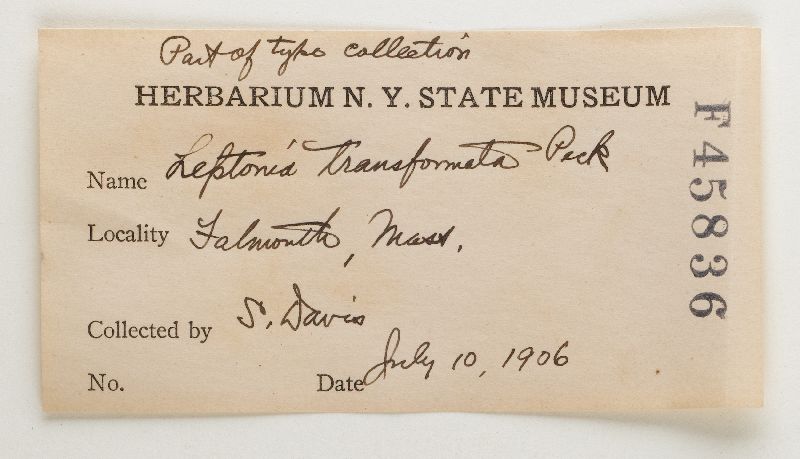 Part of type collection
HERBARIUM N. Y. STATE MUSEUM
Name Leptonia transformata Peck
Locality Falmouth, Mass.
Collected by S. Davis
No. Date July 10, 1906
F45836